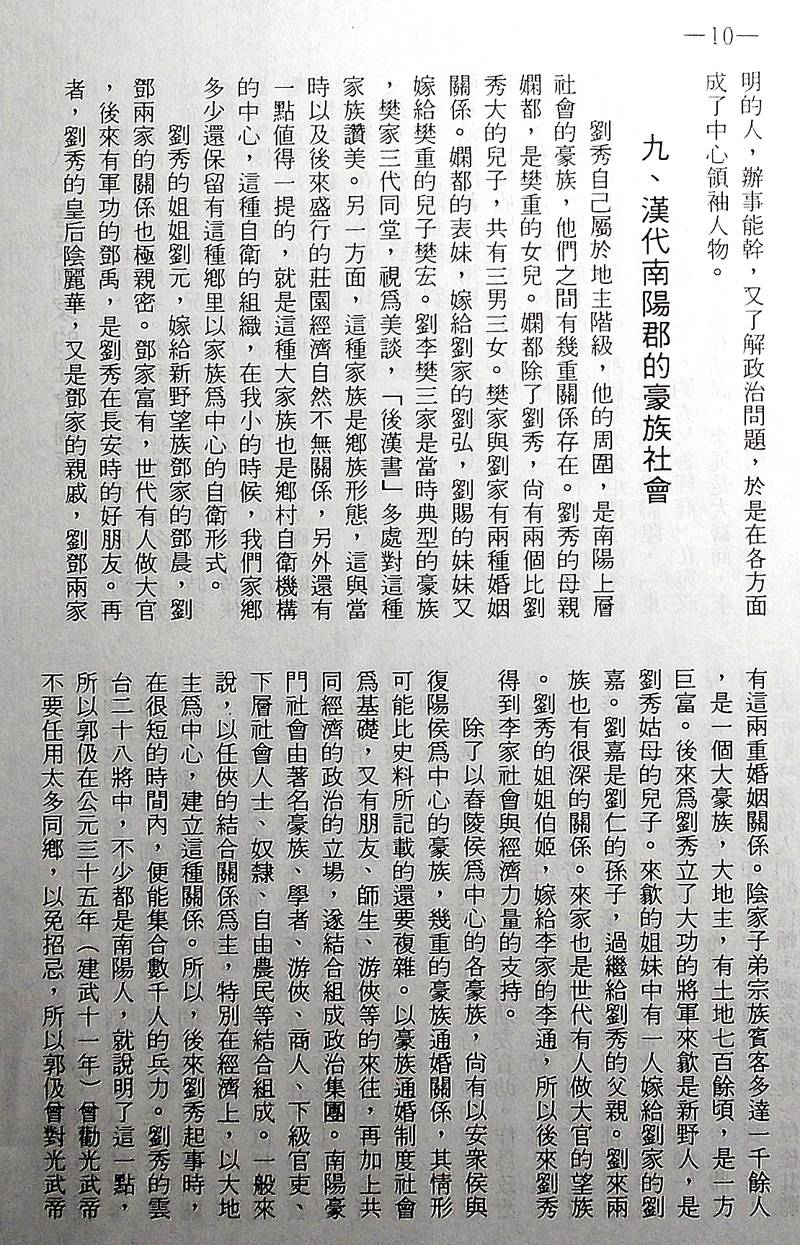 —10—
明的人，辦事能幹，又了解政治問題，於是在各方面
成了中心領袖人物。
九、漢代南陽郡的豪族社會
劉秀自己屬於地主階級，他的周圍，是南陽上層
社會的豪族，他們之間有幾重關係存在。劉秀的母親
嫻都，是樊重的女兒。嫻都除了劉秀，尚有兩個比劉
秀大的兒子，共有三男三女。樊家與劉家有兩種婚姻
關係。嫻都的表妹，嫁給劉家的劉弘，劉賜的妹妹又
嫁給樊重的兒子樊宏。劉李樊三家是當時典型的豪族
，樊家三代同堂，視爲美談，「後漢書」多處對這種
家族讚美。另一方面，這種家族是鄉族形態，這與當
時以及後來盛行的莊園經濟自然不無關係，另外還有
一點値得一提的，就是這種大家族也是鄉村自衛機構
的中心，這種自衛的組織，在我小的時候，我們家鄉
多少還保留有這種鄉里以家族爲中心的自衛形式。
劉秀的姐姐劉元，嫁給新野望族鄧家的鄧晨，劉
鄧兩家的關係也極親密。鄧家富有，世代有人做大官
，後來有軍功的鄧禹，是劉秀在長安時的好朋友。再
者，劉秀的皇后陰麗華，又是鄧家的親戚，劉鄧兩家
有這兩重婚姻關係。陰家子弟宗族賓客多達一千餘人
，是一個大豪族，大地主，有土地七百餘頃，是一方
巨富。後來爲劉秀立了大功的將軍來歙是新野人，是
劉秀姑母的兒子。來歙的姐妹中有一人嫁給劉家的劉
嘉。劉嘉是劉仁的孫子，過繼給劉秀的父親。劉來兩
族也有很深的關係。來家也是世代有人做大官的望族
。劉秀的姐姐伯姬，嫁給李家的李通，所以後來劉秀
得到李家社會與經濟力量的支持。
除了以舂陵侯爲中心的各豪族，尚有以安衆侯與
復陽侯爲中心的豪族，幾重的豪族通婚關係，其情形
可能比史料所記載的還要複雜。以豪族通婚制度社會
爲基礎，又有朋友、師生、游俠等的來往，再加上共
同經濟的政治的立場，遂結合組成政治集團。南陽豪
門社會由著名豪族、學者、游俠、商人、下級官吏、
下層社會人士、奴隸、自由農民等結合組成。一般來
說，以任俠的結合關係爲主，特別在經濟上，以大地
主爲中心，建立這種關係。所以，後來劉秀起事時，
在很短的時間內，便能集合數千人的兵力。劉秀的雲
台二十八將中，不少都是南陽人，就說明了這一點，
所以郭伋在公元三十五年（建武十一年）曾勸光武帝
不要任用太多同鄉，以免招忌，所以郭伋曾對光武帝